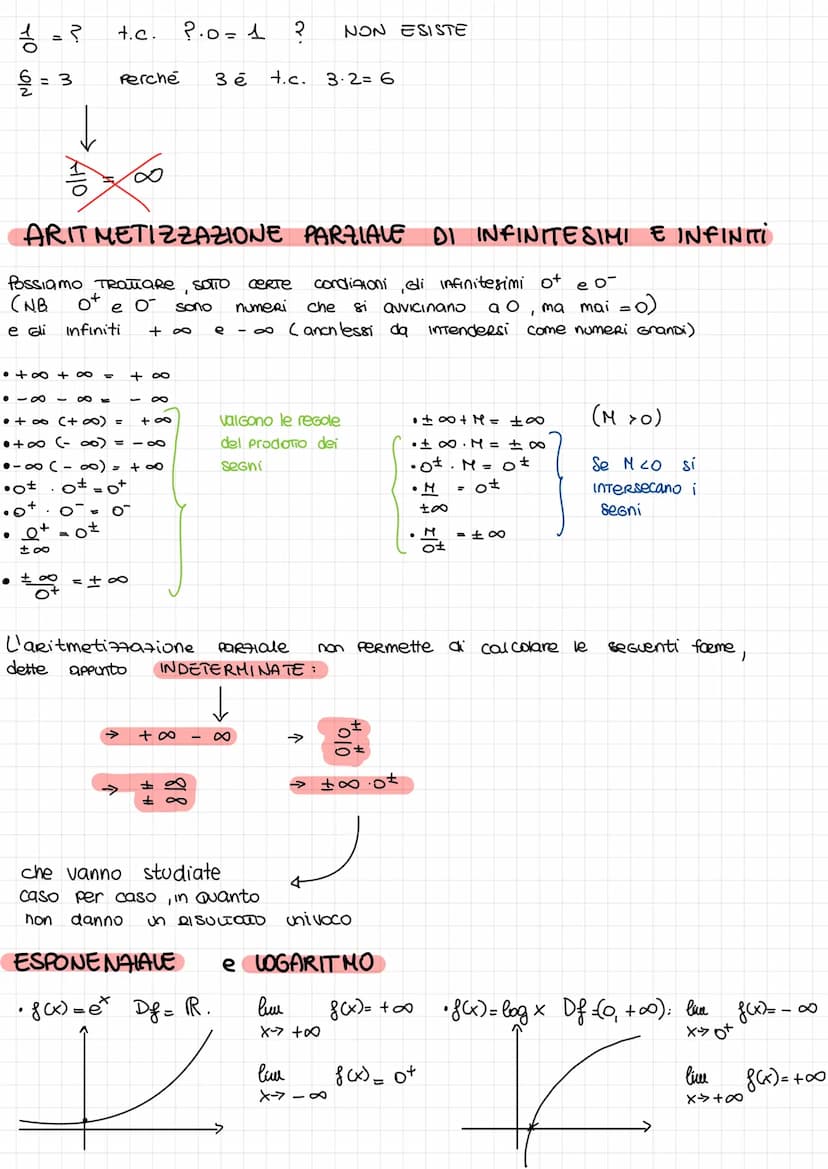 1/0 = ? t.c. ? · 0 = 1 ? NON ESISTE
6/2 = 3 Perché 3 é t.c. 3·2 = 6
1/0 = ∞
ARITMETIZZAZIONE PARZIALE DI INFINITESIMI E INFINITI
Possiamo TRATTARE, SOTTO CERTE condizioni, gli infinitesimi 0⁺ e 0⁻
(NB 0⁺ e 0⁻ sono numeri che si avvicinano a 0, ma mai = 0)
e gli infiniti + ∞ e - ∞ (anch'essi da intendersi come numeri GRANDI)
• +∞ + ∞ = + ∞
• -∞ - ∞ = - ∞
• +∞ (+∞) = +∞
• +∞ (- ∞) = -∞
• -∞ (- ∞) = + ∞
• 0± · 0± = 0⁺
• 0⁺ · 0⁻ = 0⁻
• 0⁺/±∞ = 0±
• ±∞/0⁺ = ± ∞
valgono le regole
del prodotto dei
segni
• ±∞ + M = ±∞ (M > 0)
• ±∞ · M = ± ∞
• 0± · M = 0±
• M/±∞ = 0±
• M/0± = ± ∞
Se M<0 si
intersecano i
segni
L'aritmetizzazione parziale non permette di calcolare le seguenti forme,
dette appunto INDETERMINATE:
→ +∞ - ∞ → 0±/0±
→ ±∞/±∞ → ±∞ · 0±
che vanno studiate
caso per caso, in quanto
non danno un RISULTATO univoco
ESPONENZIALE e LOGARITMO
• f(x) = eˣ Df = ℝ. lim x→ +∞ f(x) = +∞ • f(x) = log x Df = (0, +∞): lim x→ 0⁺ f(x) = - ∞
lim x→ - ∞ f(x) = 0⁺ lim x→ +∞ f(x) = +∞